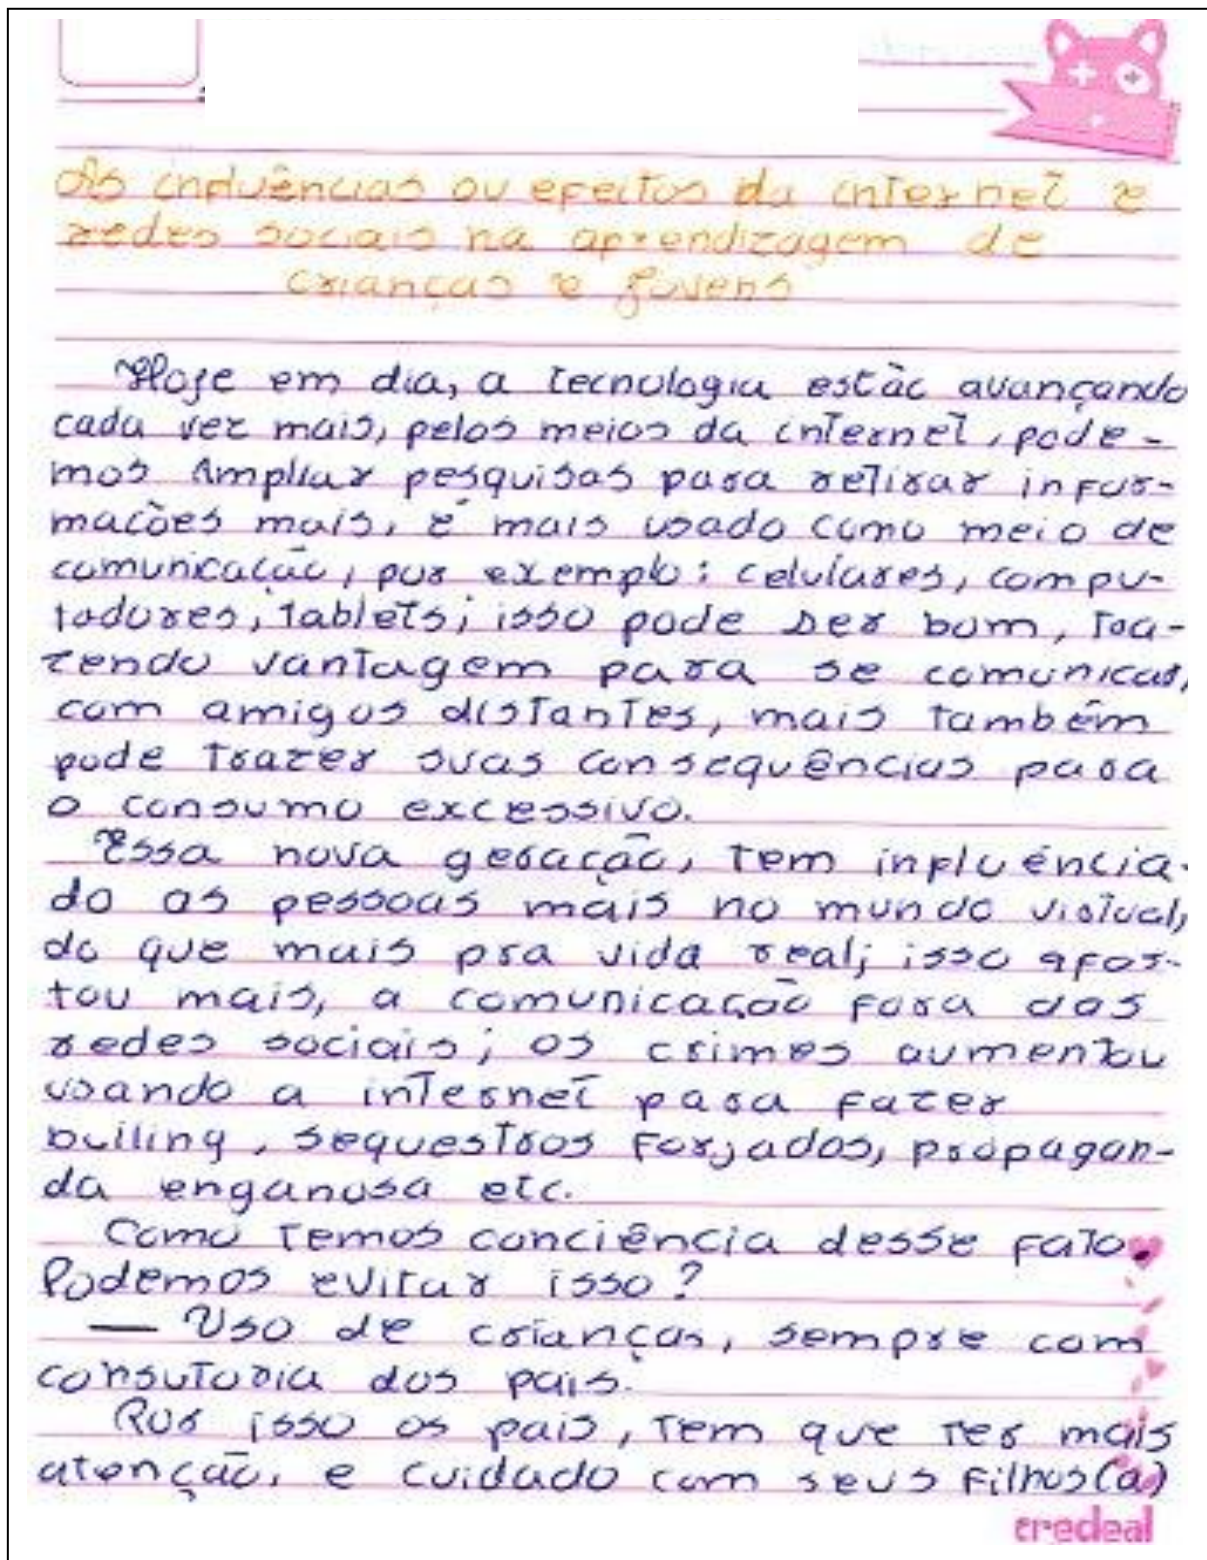 As influências ou efeitos da internet e
redes sociais na aprendizagem de
crianças e jovens
Hoje em dia, a tecnologia estão avançando
cada vez mais, pelos meios da internet, pode-
mos Ampliar pesquisas para retirar infor-
mações mais, é mais usado como meio de
comunicação, por exemplo: celulares, compu-
tadores, tablets; isso pode ser bom, tra-
zendo vantagem para se comunicar,
com amigos distantes, mais também
pode trazer suas consequências para
o consumo excessivo.
Essa nova geração, tem influência-
do as pessoas mais no mundo virtual,
do que mais pra vida real; isso afas-
tou mais, a comunicação fora das
redes sociais; os crimes aumentou
usando a internet para fazer
builing, sequestros forjados, propagan-
da enganosa etc.
Como temos conciência desse fato.
Podemos evitar isso?
— Uso de crianças, sempre com
consutoria dos pais.
Por isso os pais, tem que ter mais
atenção, e cuidado com seus filhos(a)
credeal